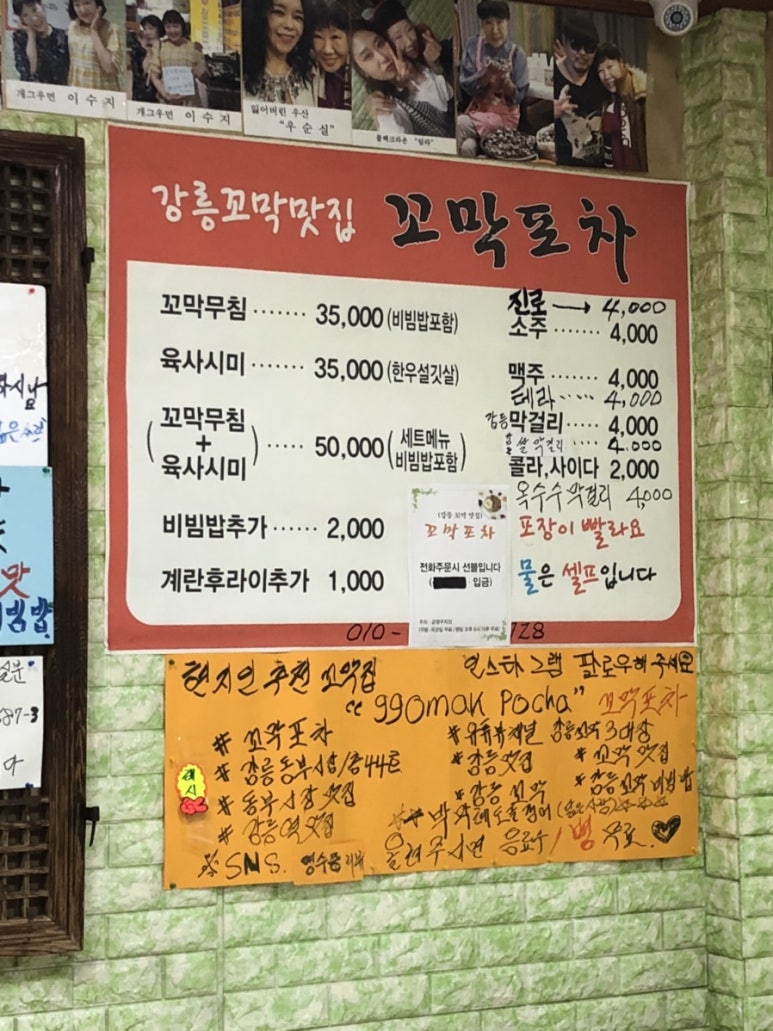 개그우먼 이수지
개그우먼 이수지
잃어버린 우산
"우순실"
블랙크라운 "릴라"
강릉꼬막맛집 꼬막포차
꼬막무침 ······· 35,000 (비빔밥포함)
육사시미 ······· 35,000 (한우설깃살)
(꼬막무침 + 육사시미) ····· 50,000 (세트메뉴 비빔밥포함)
비빔밥추가 ······ 2,000
계란후라이추가 1,000
진로 → 4,000
소주 ······· 4,000
맥주 ······· 4,000
테라 ····· 4,000
강릉 막걸리 ····· 4,000
쌀 막걸리 ···· 4.000
콜라,사이다 2,000
옥수수 막걸리 4,000
포장이 빨라요
물은 셀프입니다
(강릉 꼬막 맛집)
꼬막포차
전화주문시 선불입니다
( 입금)
010- 728
현지인 추천 꼬막집
인스타그램 팔로우해 주세요
"ggomak Pocha" 꼬막포차
# 꼬막포차
# 강릉동부시장/1층44호
# 동부시장 맛집
# 강릉역맛집
# 유튜브채널 강릉꼬막 3대장
# 강릉맛집
# 꼬막 맛집
# 강릉 꼬막
# 강릉꼬막비빔밥
SNS. 영수증 리뷰
올려주시면 음료수/병 무료.
맛
비빔밥